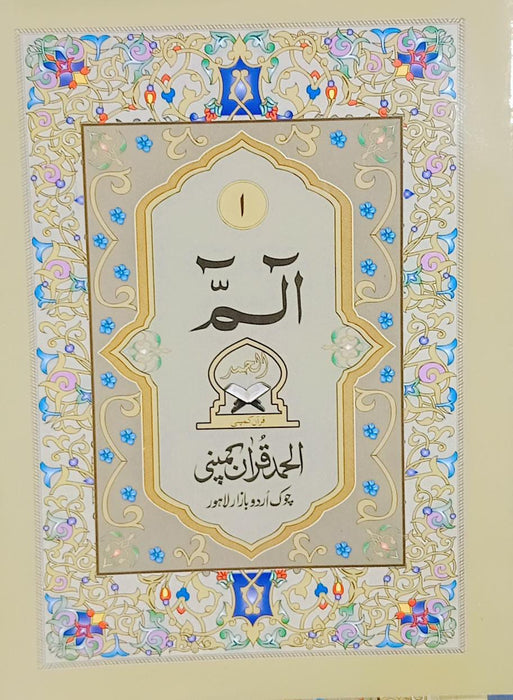 ۱
الٓمّٓ
الحمد
قرآن کمپنی
الحمد قُرآن کمپنی
چوک اُردو بازار لاہور